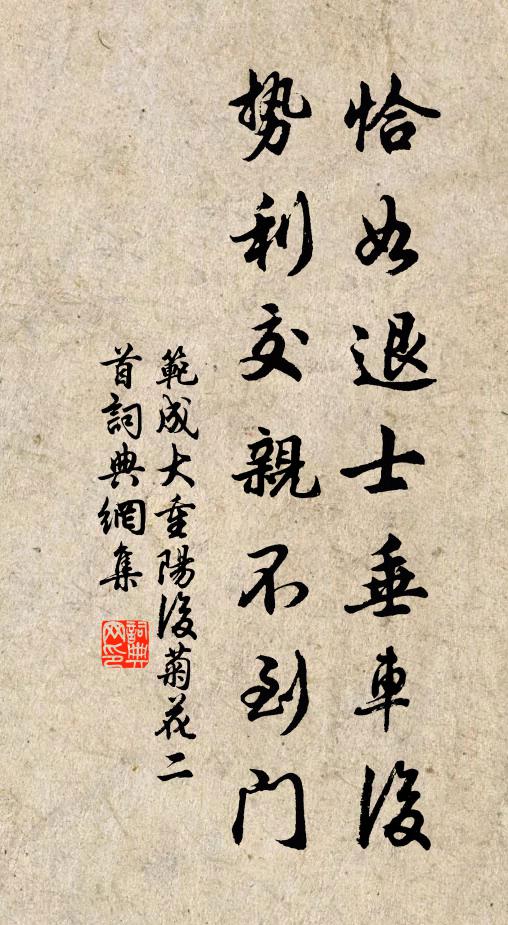 恰如退士垂車後
勢利交親不到門
範成大重陽後菊花二
首詞典網集
詞典
网印